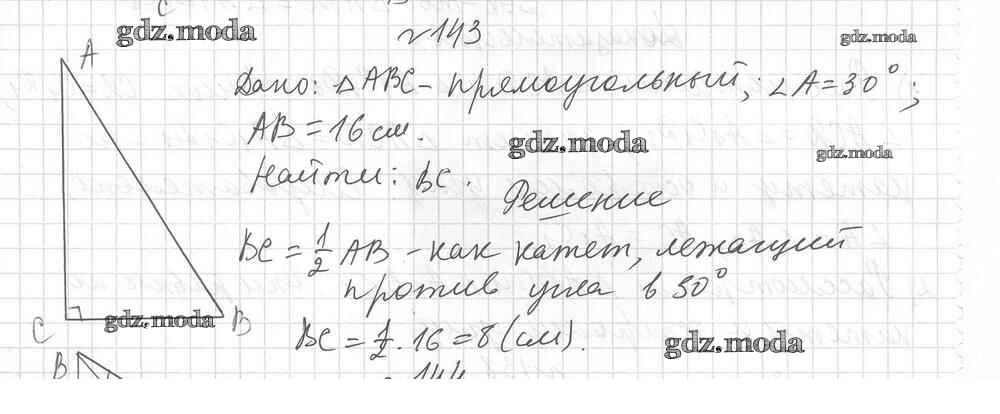 С
gdz.moda
№143
gdz.moda
A
Дано: △ABC – прямоугольный; ∠A = 30°;
AB = 16 см.
gdz.moda
gdz.moda
Найти: BC.
Решение
BC = 1/2 AB – как катет, лежащий
против угла в 30°
C
gdz.moda
B
BC = 1/2 · 16 = 8 (см).
gdz.moda
B
144